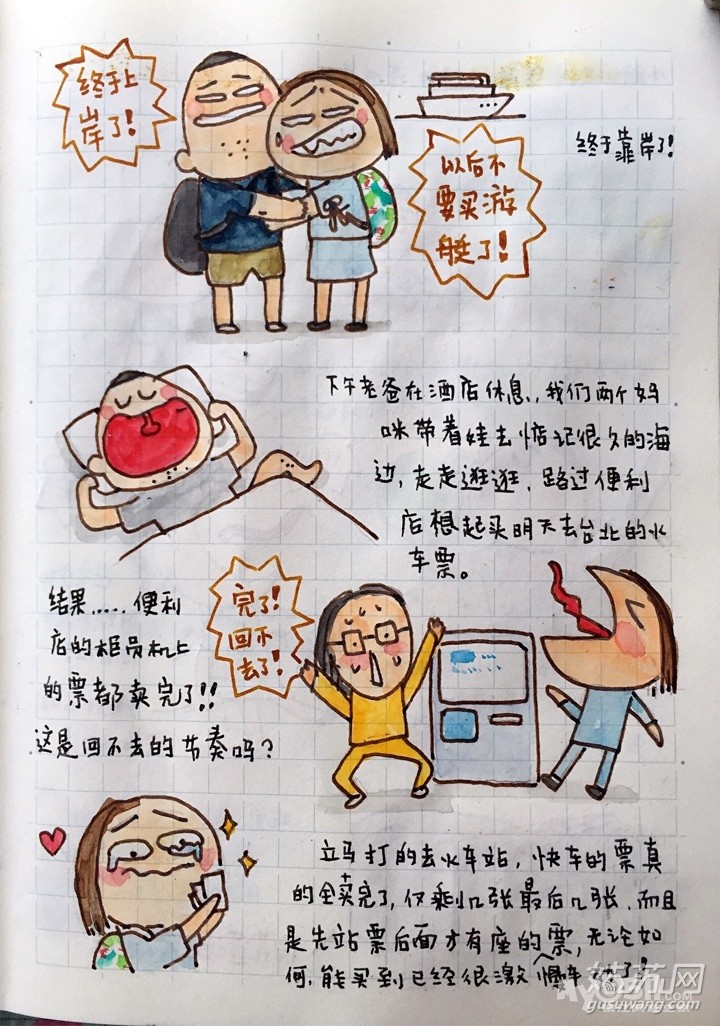 终于上
岸了!
终于靠岸了!
以后不
要买游
艇了!
下午老爸在酒店休息,我们两个妈
咪带着娃去惦记很久的海
边,走走逛逛,路过便利
店想起买明天去台北的火
车票。
完了!
回不
去了!
结果.....便利
店的柜员机上
的票都卖完了!!
这是回不去的节奏吗?
立马打的去火车站,快车的票真
的全卖完了,仅剩几张最后几张,而且
是先站票后面才有座的慢车票,无论如
何,能买到已经很激 了!
姑苏网
gusuwang.com